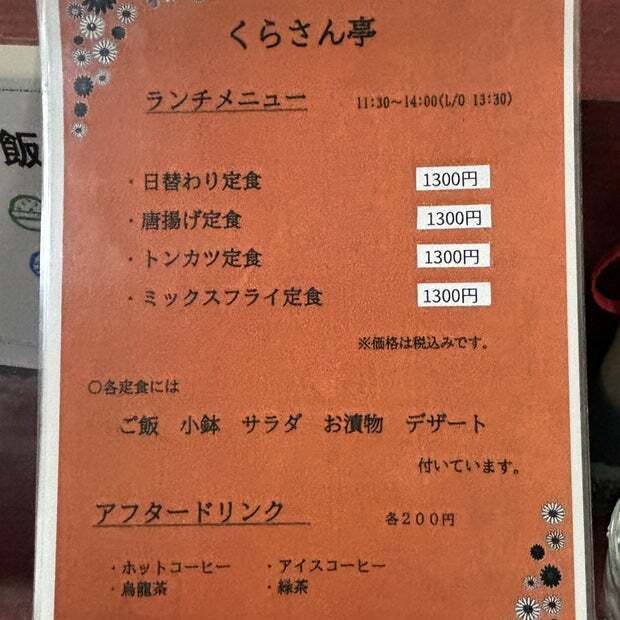 くらさん亭
ランチメニュー 11:30～14:00(L/O 13:30)
・日替わり定食 1300円
・唐揚げ定食 1300円
・トンカツ定食 1300円
・ミックスフライ定食 1300円
※価格は税込みです。
〇各定食には
ご飯 小鉢 サラダ お漬物 デザート
付いています。
アフタードリンク 各200円
・ホットコーヒー ・アイスコーヒー
・烏龍茶 ・緑茶
飯